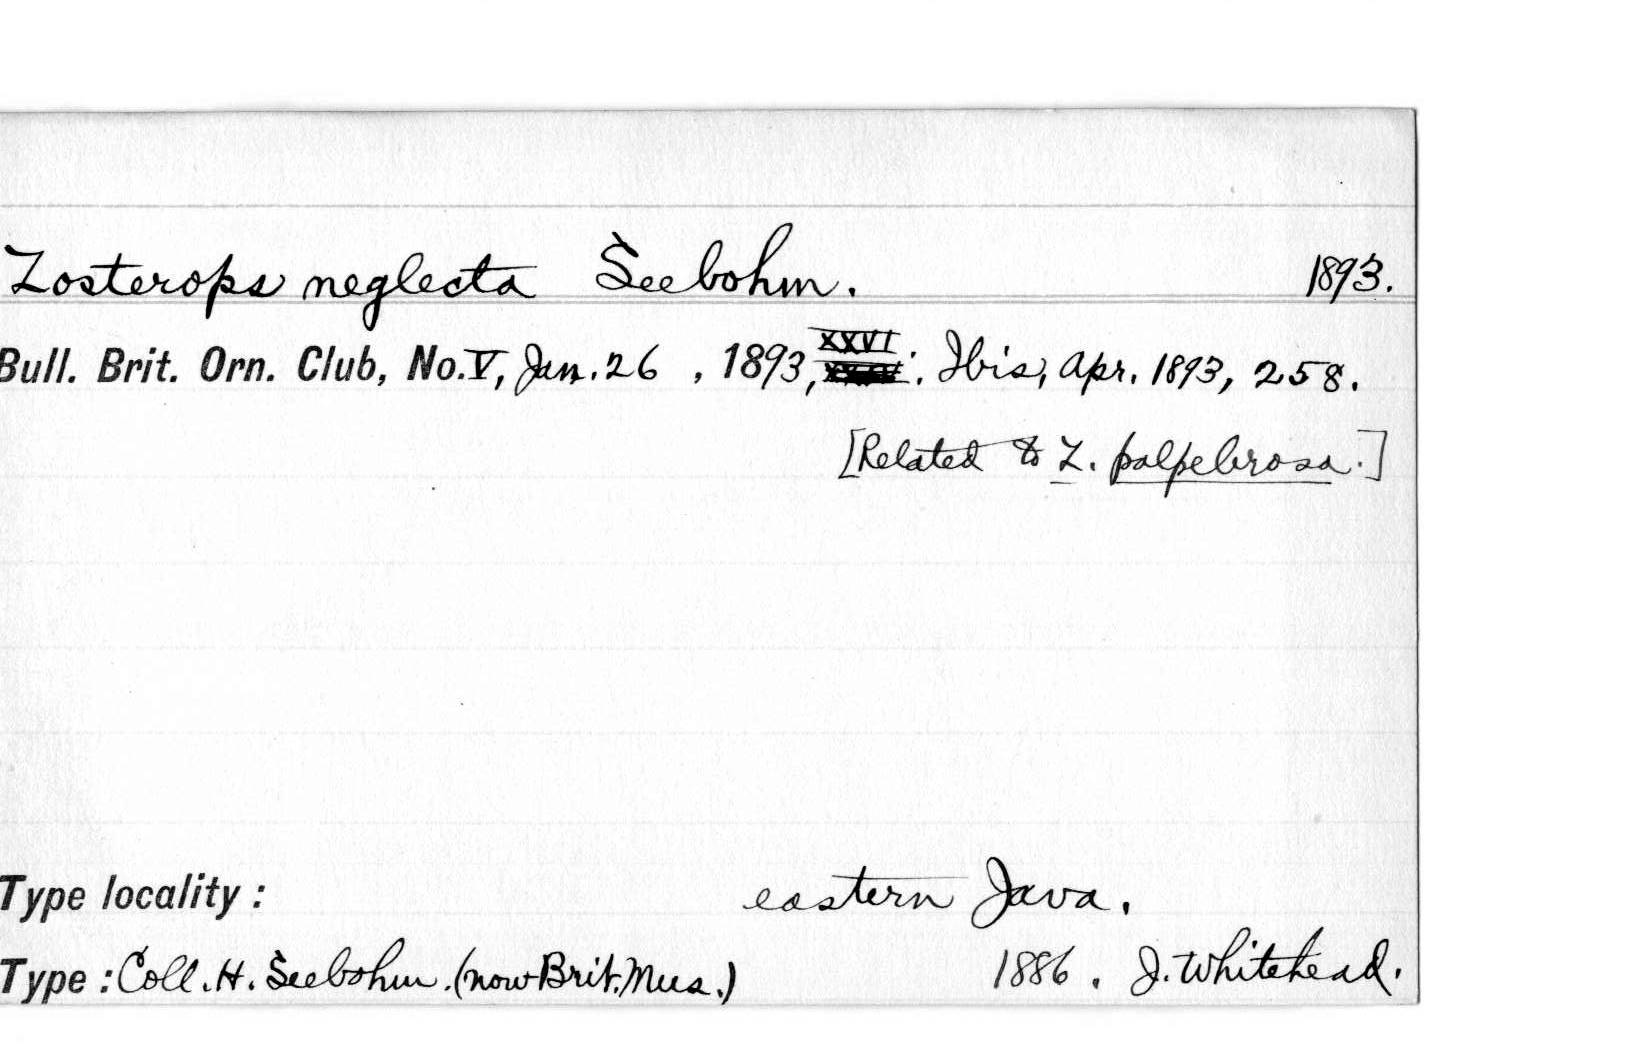 Zosterops neglecta Seebohm. 1893.
Bull. Brit. Orn. Club, No. V, Jan. 26 , 1893, XXVI ; Ibis, Apr. 1893, 258.
[Related to Z. palpebrosa.]
Type locality : eastern Java.
Type : Coll. H. Seebohm. (now Brit. Mus.) 1886 . J. Whitehead.